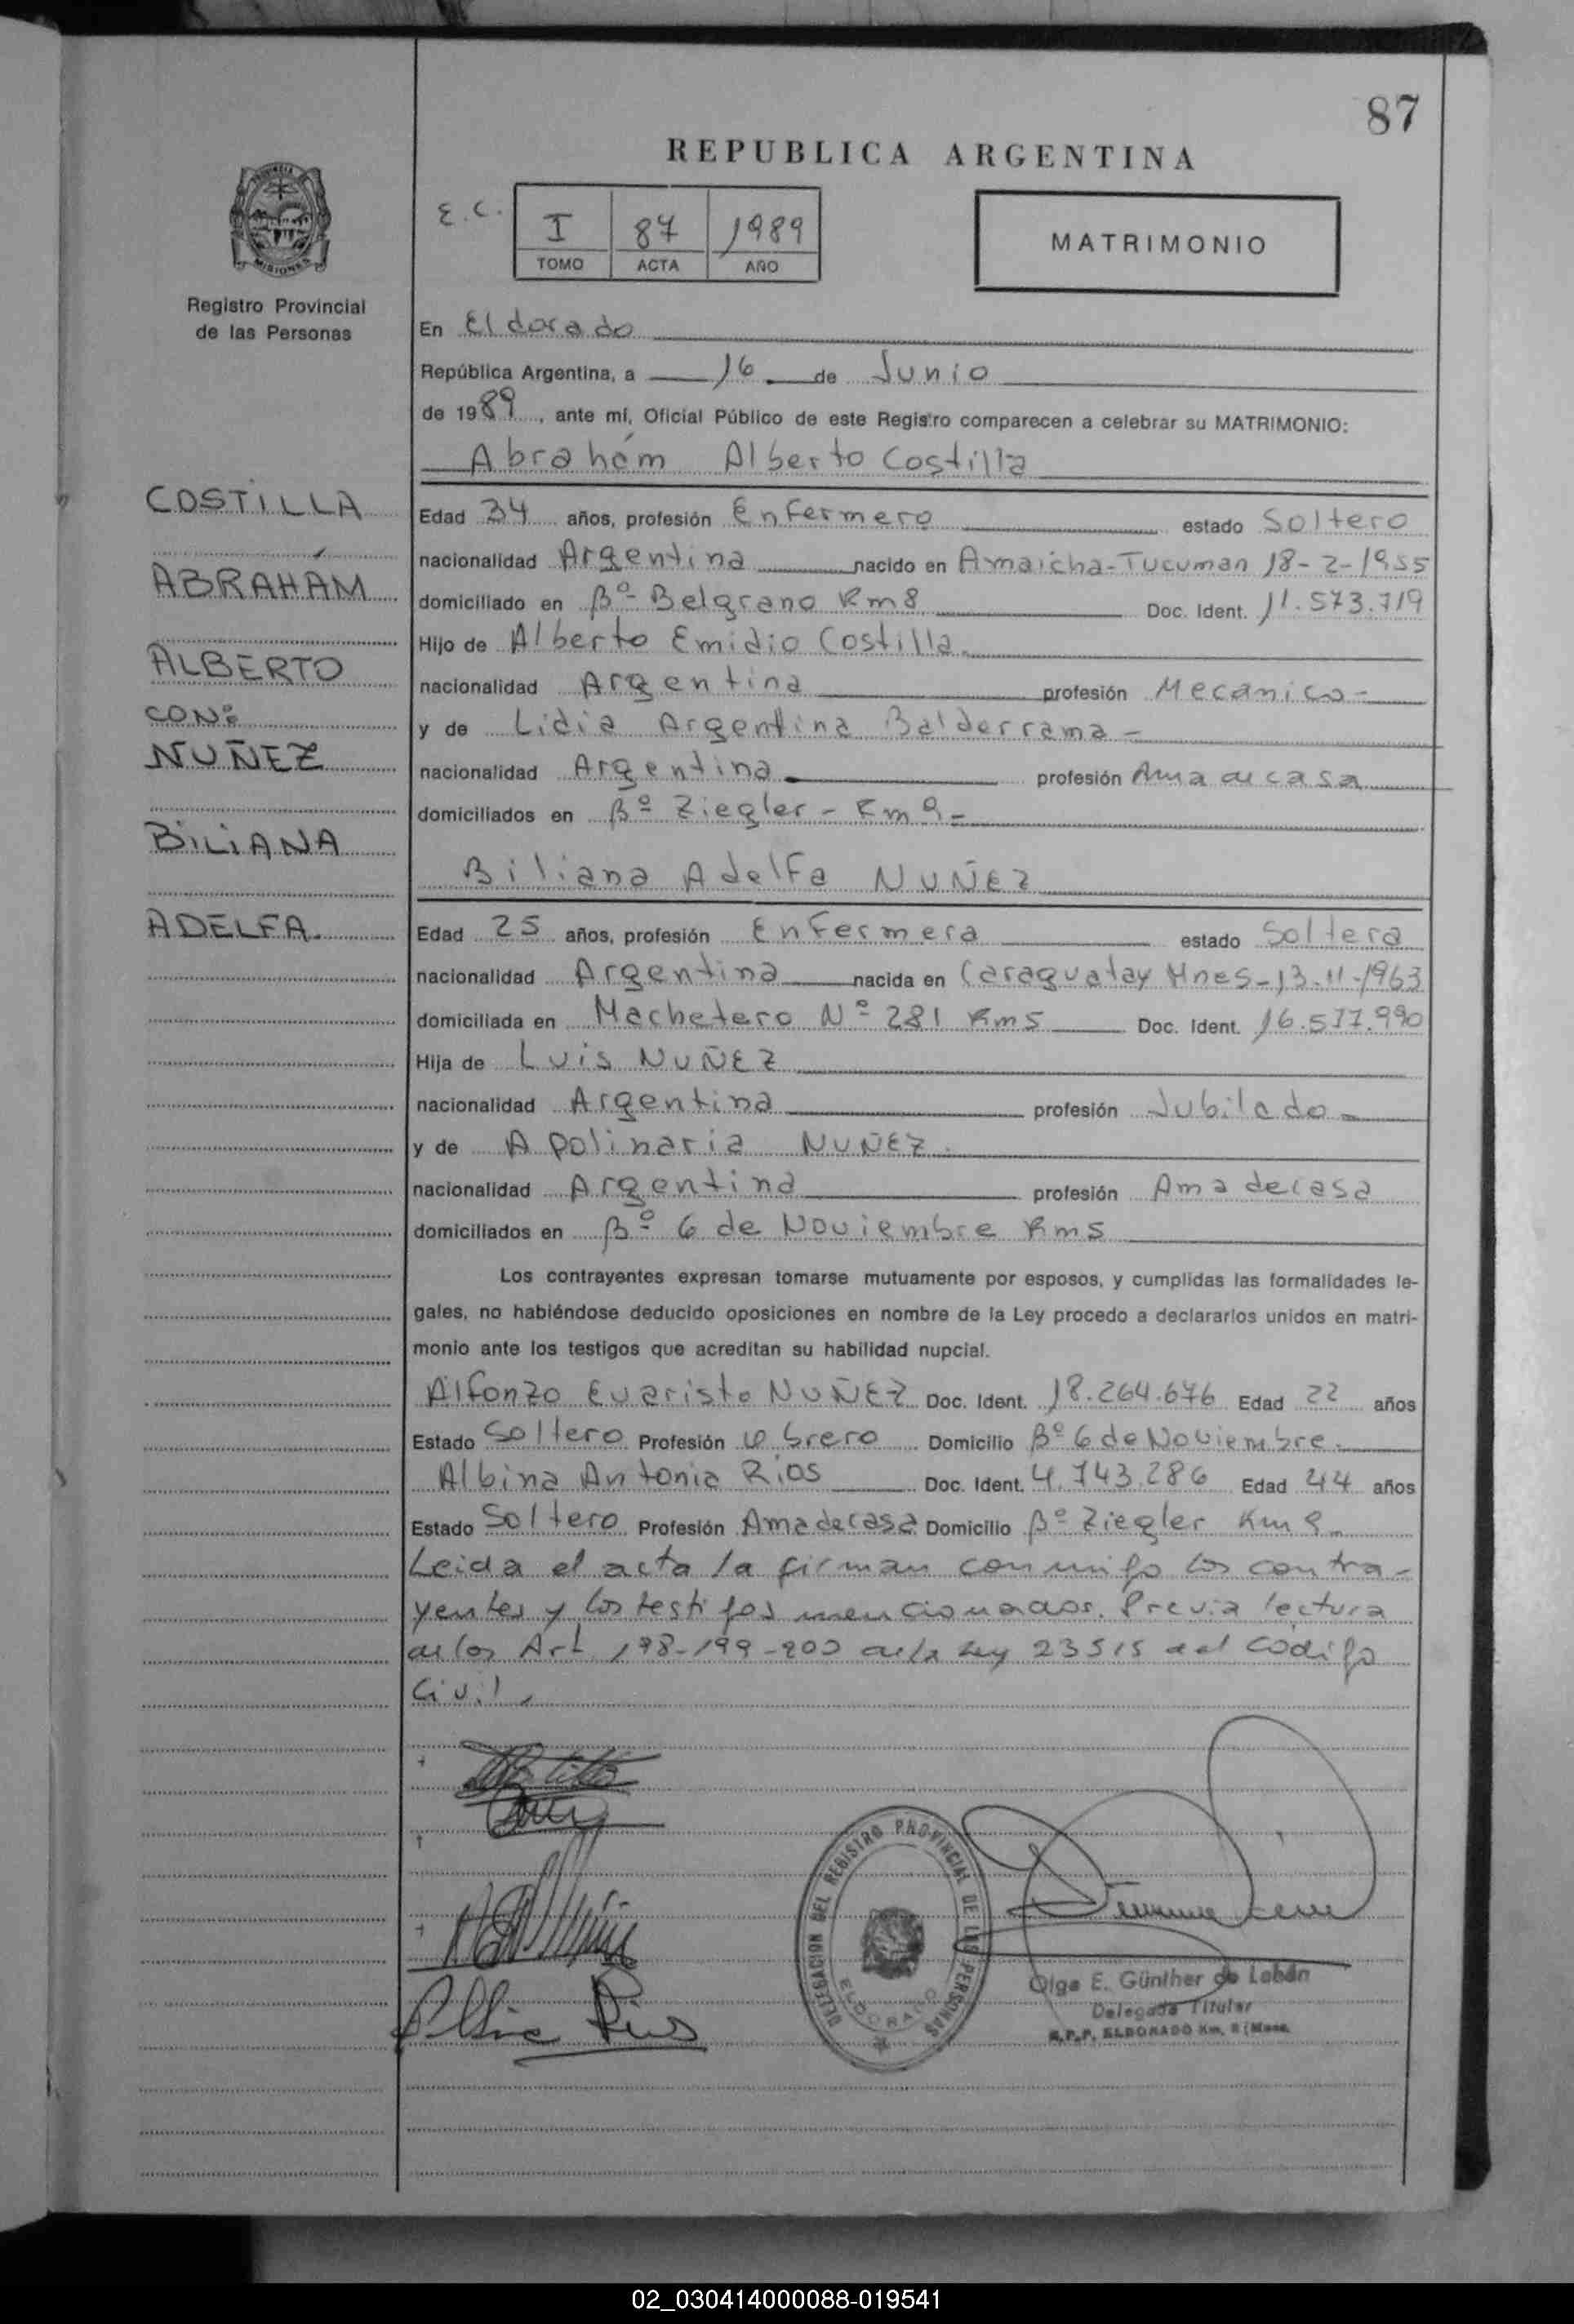 87
REPUBLICA ARGENTINA
E.C. I 87 1989
TOMO ACTA AÑO
MATRIMONIO
MISIONES
Registro Provincial
de las Personas
En Eldorado
República Argentina, a 16 de Junio
de 1989, ante mí, Oficial Público de este Registro comparecen a celebrar su MATRIMONIO:
Abrahám Alberto Costilla
COSTILLA
ABRAHÁM
ALBERTO
CON:
NUÑEZ
BILIANA
ADELFA.
Edad 34 años, profesión Enfermero estado Soltero
nacionalidad Argentina nacido en Amaicha-Tucuman 18-2-1955
domiciliado en Bº Belgrano Km8 Doc. Ident. 11.573.719
Hijo de Alberto Emidio Costilla.
nacionalidad Argentina profesión Mecánico-
y de Lidia Argentina Balderrama-
nacionalidad Argentina profesión Ama de casa
domiciliados en Bº Ziegler - Km 9-
Biliana Adelfa NUÑEZ
Edad 25 años, profesión Enfermera estado Soltera
nacionalidad Argentina nacida en Caraguatay Mnes-13-11-1963
domiciliada en Machetero Nº 281 Km5 Doc. Ident. 16.577.990
Hija de Luis NUÑEZ
nacionalidad Argentina profesión Jubilado-
y de Apolinaria NUÑEZ.
nacionalidad Argentina profesión Ama decasa
domiciliados en Bº 6 de Noviembre Km5
Los contrayentes expresan tomarse mutuamente por esposos, y cumplidas las formalidades le-
gales, no habiéndose deducido oposiciones en nombre de la Ley procedo a declararlos unidos en matri-
monio ante los testigos que acreditan su habilidad nupcial.
Alfonzo Evaristo NUÑEZ Doc. Ident. 18.264.676 Edad 22 años
Estado Soltero Profesión Obrero Domicilio Bº 6 de Noviembre.
Albina Antonia Rios Doc. Ident. 4.743.286 Edad 44 años
Estado Soltero Profesión Ama decasa Domicilio Bº Ziegler Km 9
Leida el acta la firman conmigo los contra-
yentes y los testigos mencionados. Previa lectura
de los Art 198-199-200 de la Ley 23515 del Código
Civil.
DELEGACION DEL REGISTRO PROVINCIAL DE LAS PERSONAS
ELDORADO
Albina Rios
Olga E. Günther de Lobán
Delegada Titular
R.P.P. ELDORADO Km. 8 (Mnes.
02_030414000088-019541